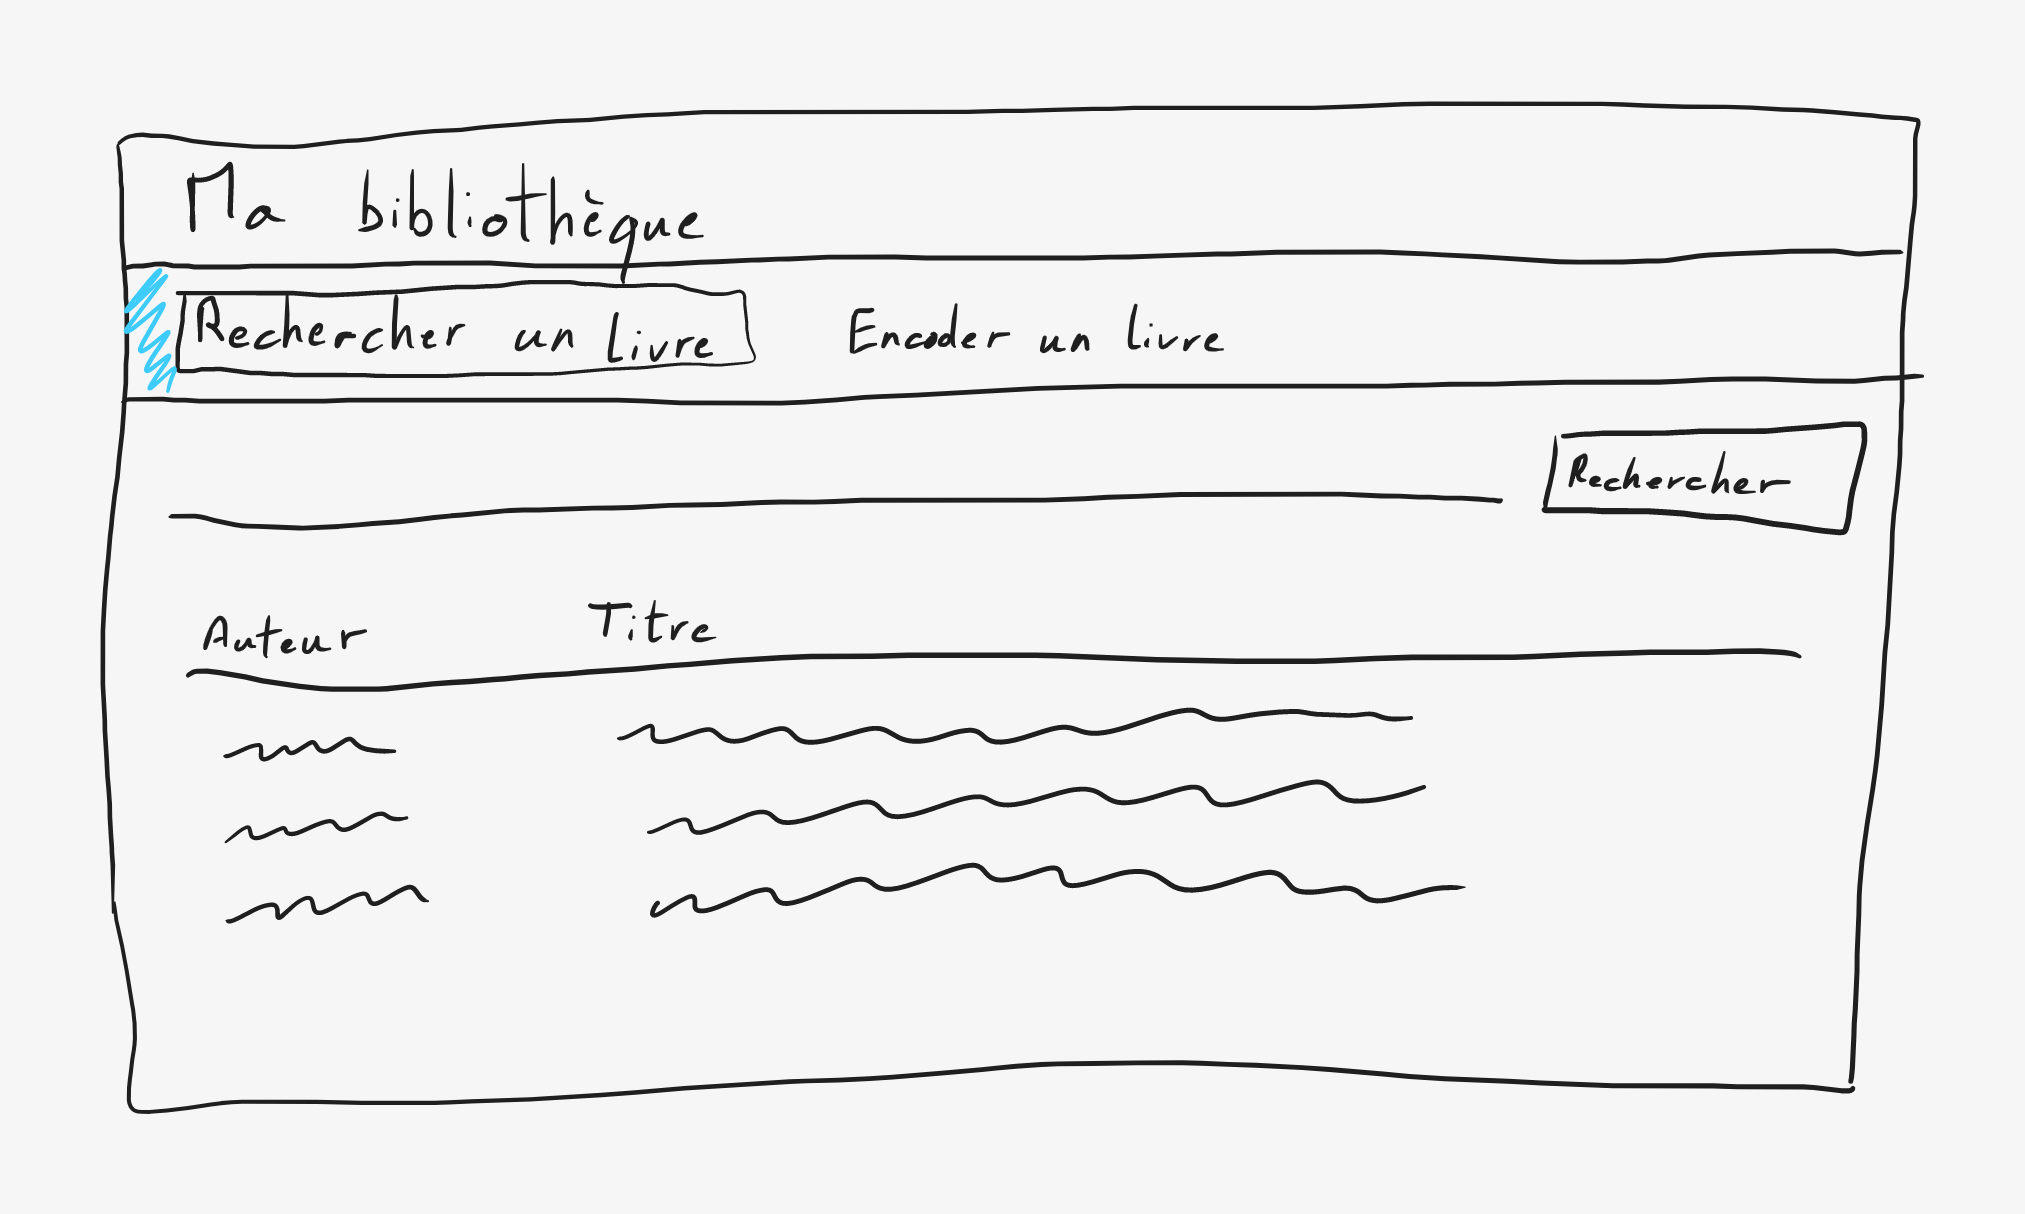 Ma bibliothèque
Rechercher un livre Encoder un livre
Rechercher
Auteur Titre